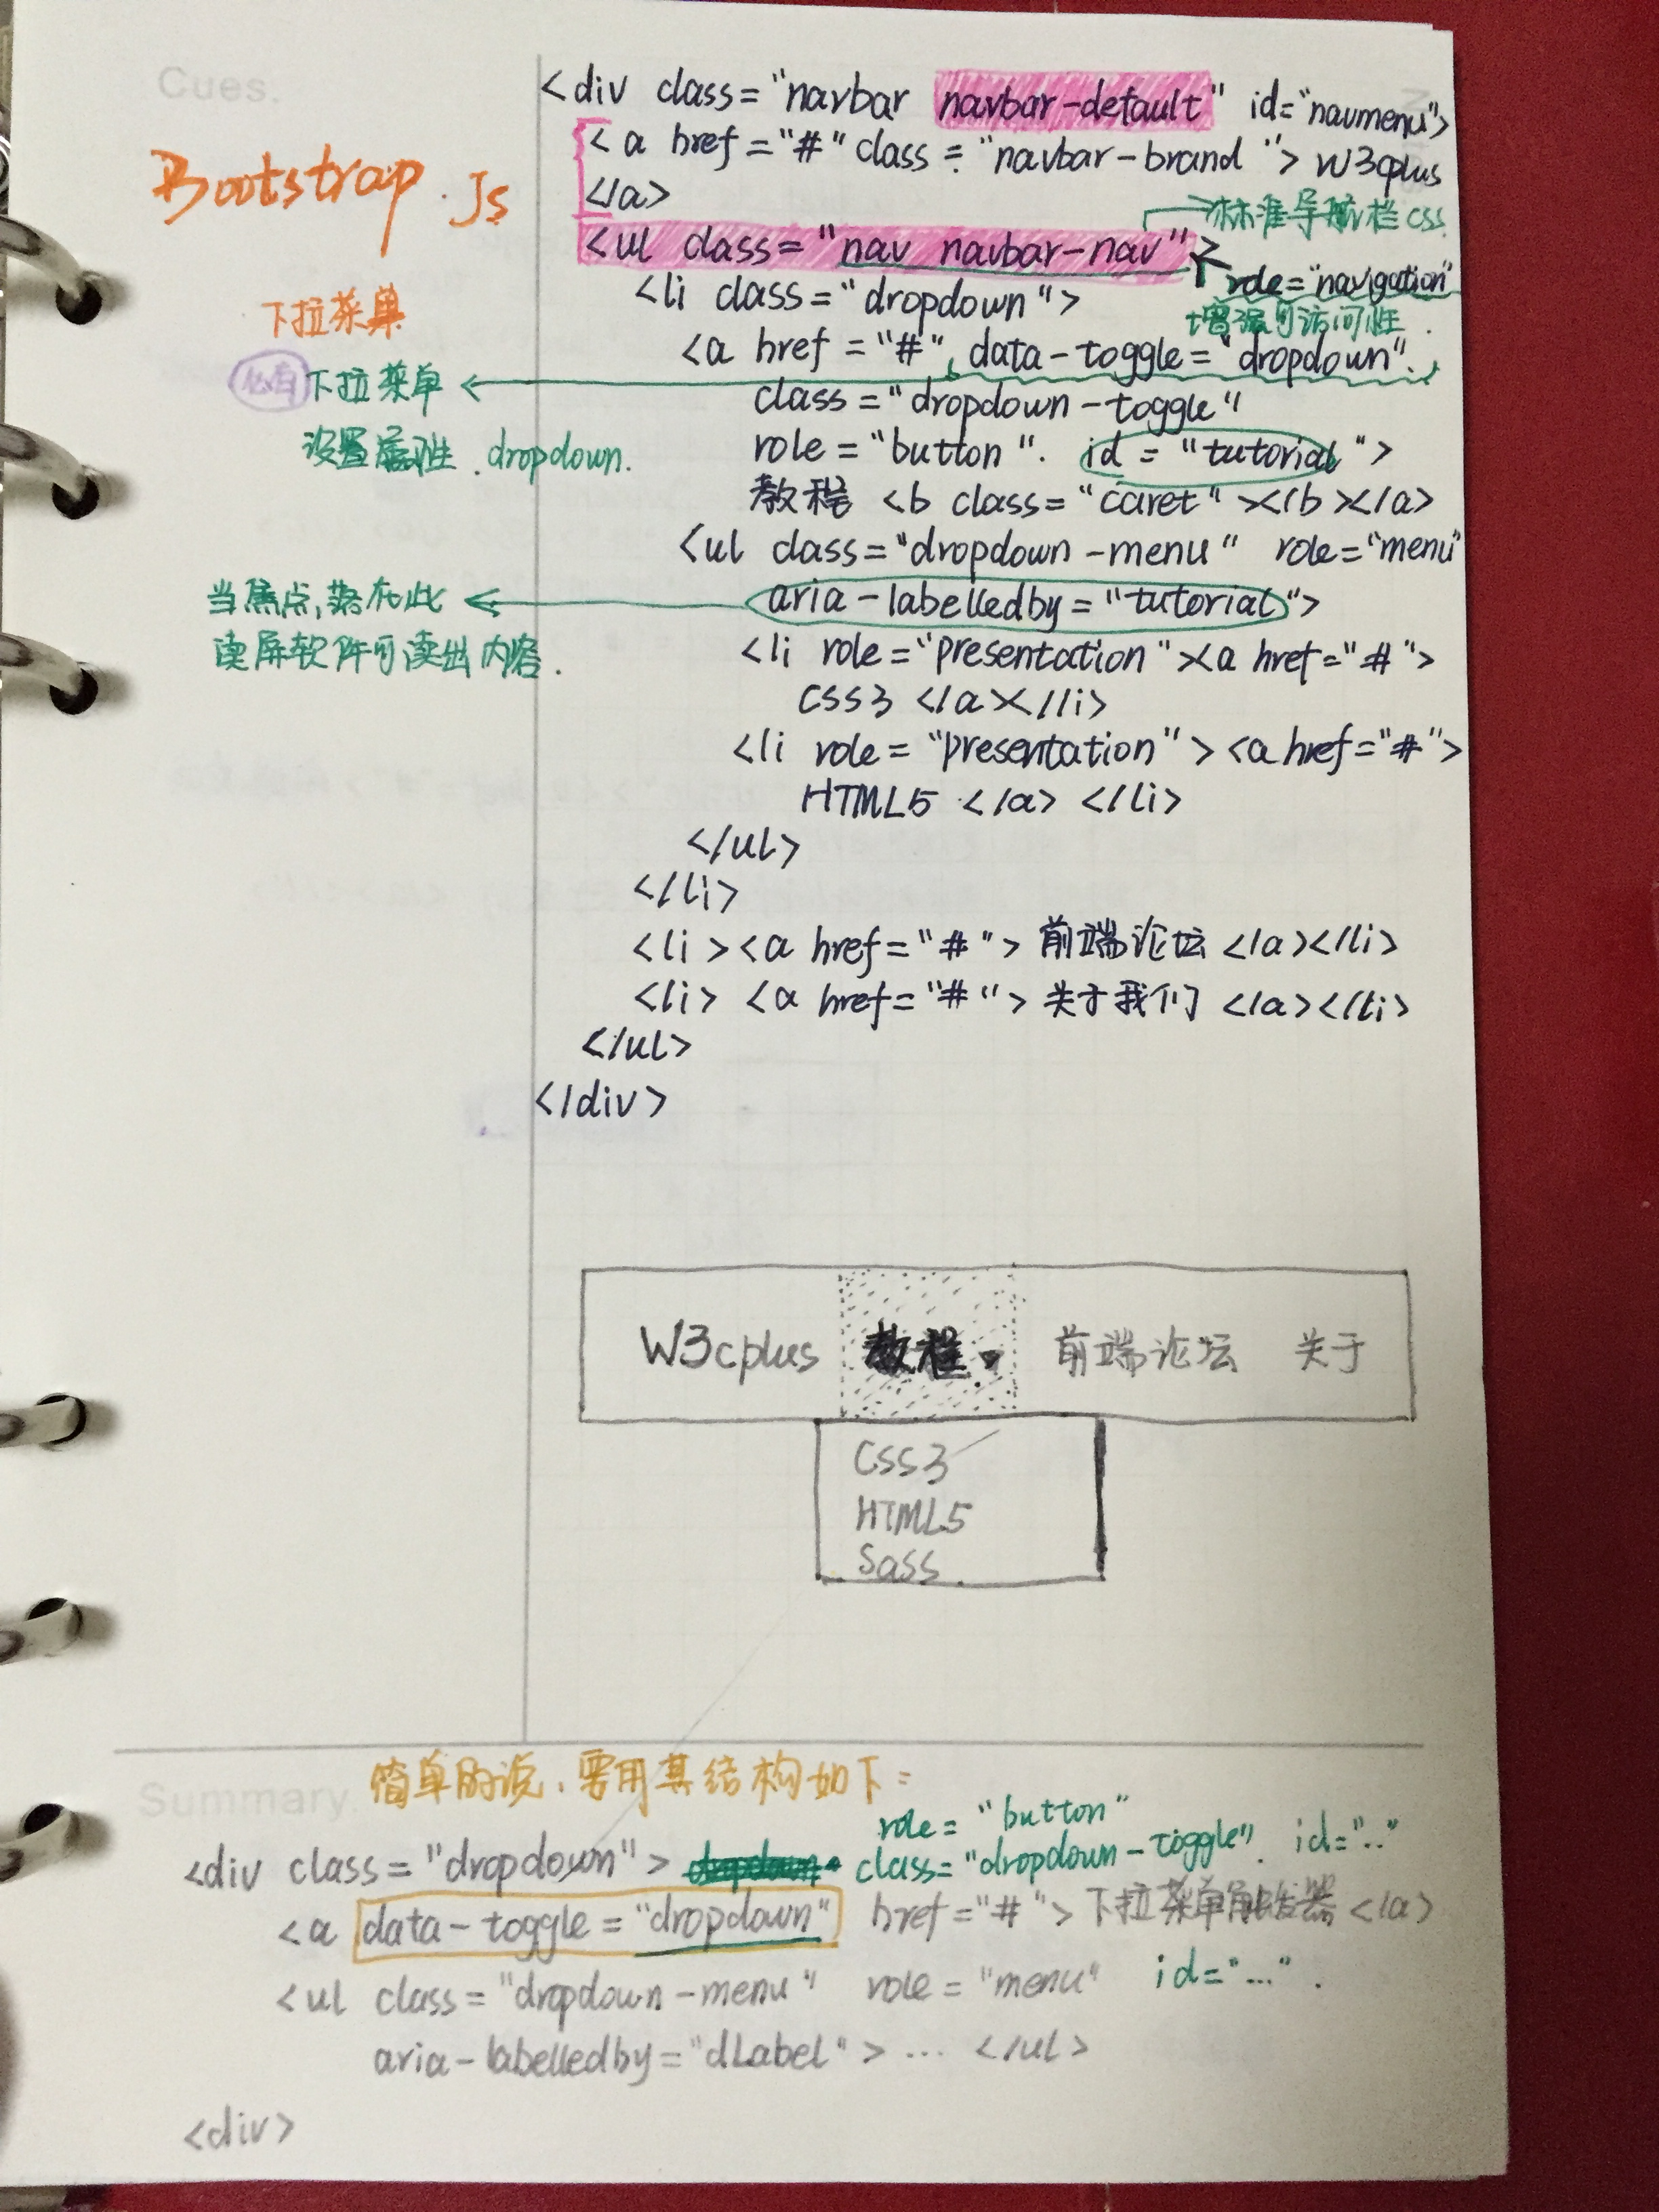 Cues.
Bootstrap.Js
下拉菜单
下拉菜单
设置属性.dropdown.
当焦点,落在此
读屏软件可读出内容.
<div class="navbar navbar-default" id="navmenu">
<a href="#" class="navbar-brand"> W3cplus
</a>
标准导航栏css
<ul class="nav navbar-nav">
role="navigation"
增强可访问性.
<li class="dropdown">
<a href="#", data-toggle="dropdown".
class="dropdown-toggle"
role="button". id="tutorial">
教程 <b class="caret"></b></a>
<ul class="dropdown-menu" role="menu"
aria-labelledby="tutorial">
<li role="presentation"><a href="#">
CSS3 </a></li>
<li role="presentation"><a href="#">
HTML5 </a></li>
</ul>
</li>
<li><a href="#">前端论坛</a></li>
<li><a href="#">关于我们</a></li>
</ul>
</div>
W3cplus 教程 前端论坛 关于
CSS3
HTML5
Sass
Summary
简单的说,要用其结构如下:
role="button"
<div class="dropdown"> class="dropdown-toggle". id=".."
<a data-toggle="dropdown" href="#">下拉菜单触发器</a>
<ul class="dropdown-menu" role="menu" id="...".
aria-labelledby="dLabel">...</ul>
<div>